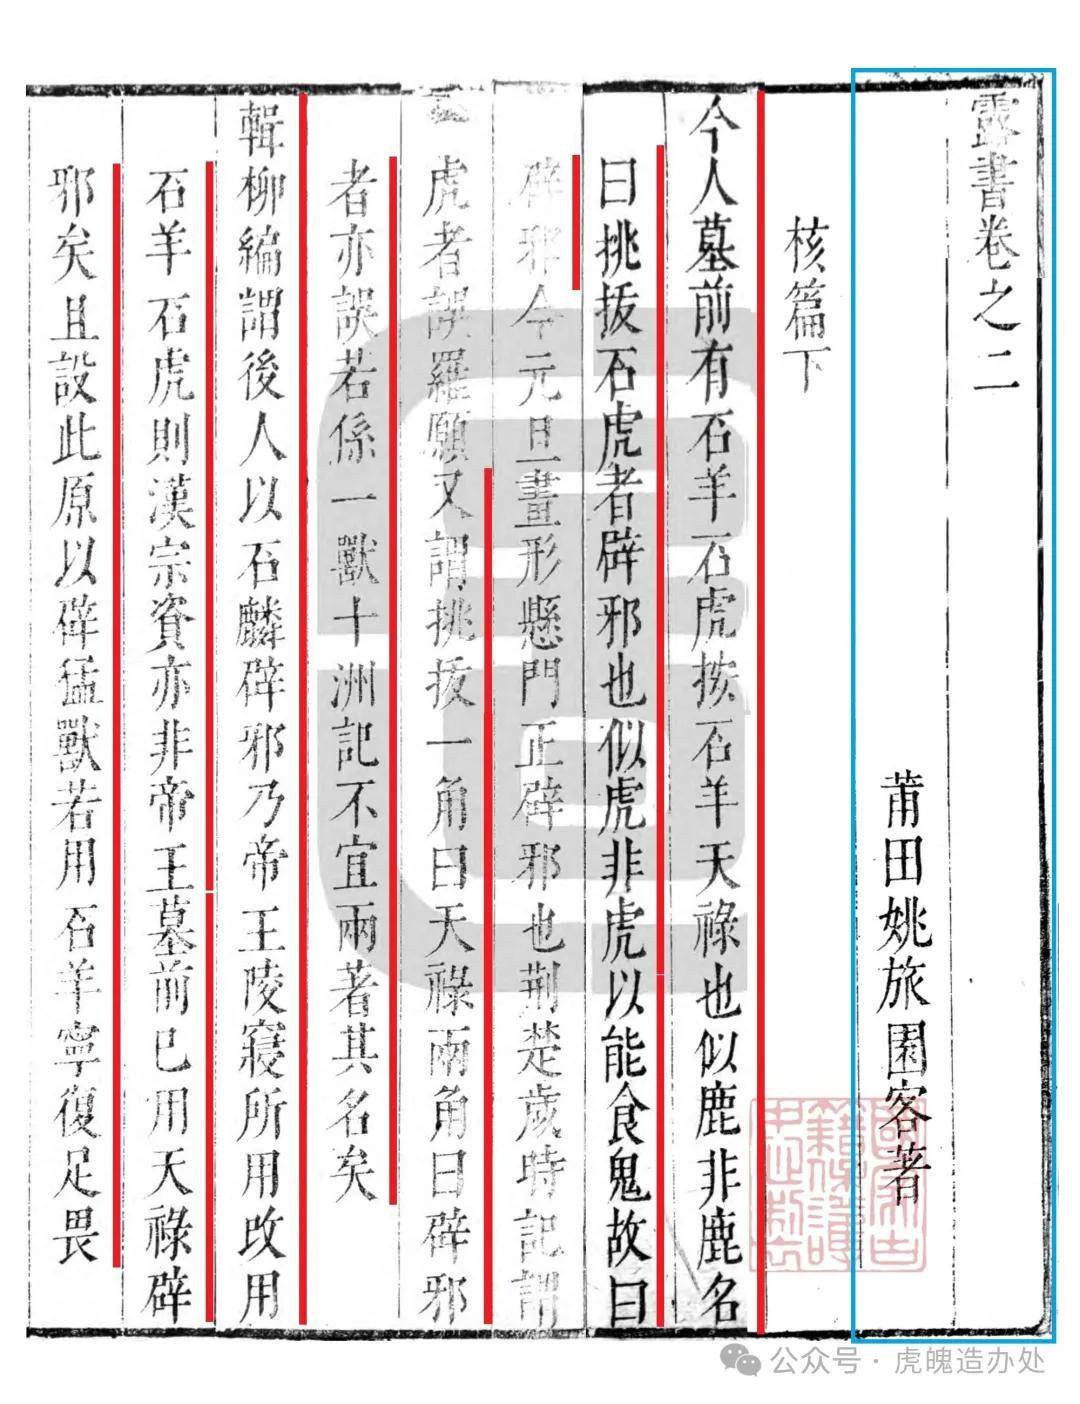 露書卷之二
莆田姚旅園客著
核篇下
今人墓前有石羊石虎按石羊天祿也似鹿非鹿名
曰挑拔石虎者辟邪也似虎非虎以能食鬼故曰
辟邪今元旦畫形懸門正辟邪也荊楚歲時記謂
虎者誤羅願又謂挑拔一角曰天祿兩角曰辟邪
者亦誤若係一獸十洲記不宜兩著其名矣
輯柳編謂後人以石麟辟邪乃帝王陵寢所用改用
石羊石虎則漢宗資亦非帝王墓前已用天祿辟
邪矣且設此原以辟猛獸若用石羊寧復足畏
公众号·虎魄造办处